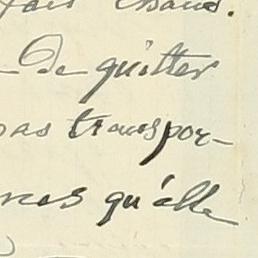 fait chaud.
- De quitter
pas transpor-
rces qu'elle